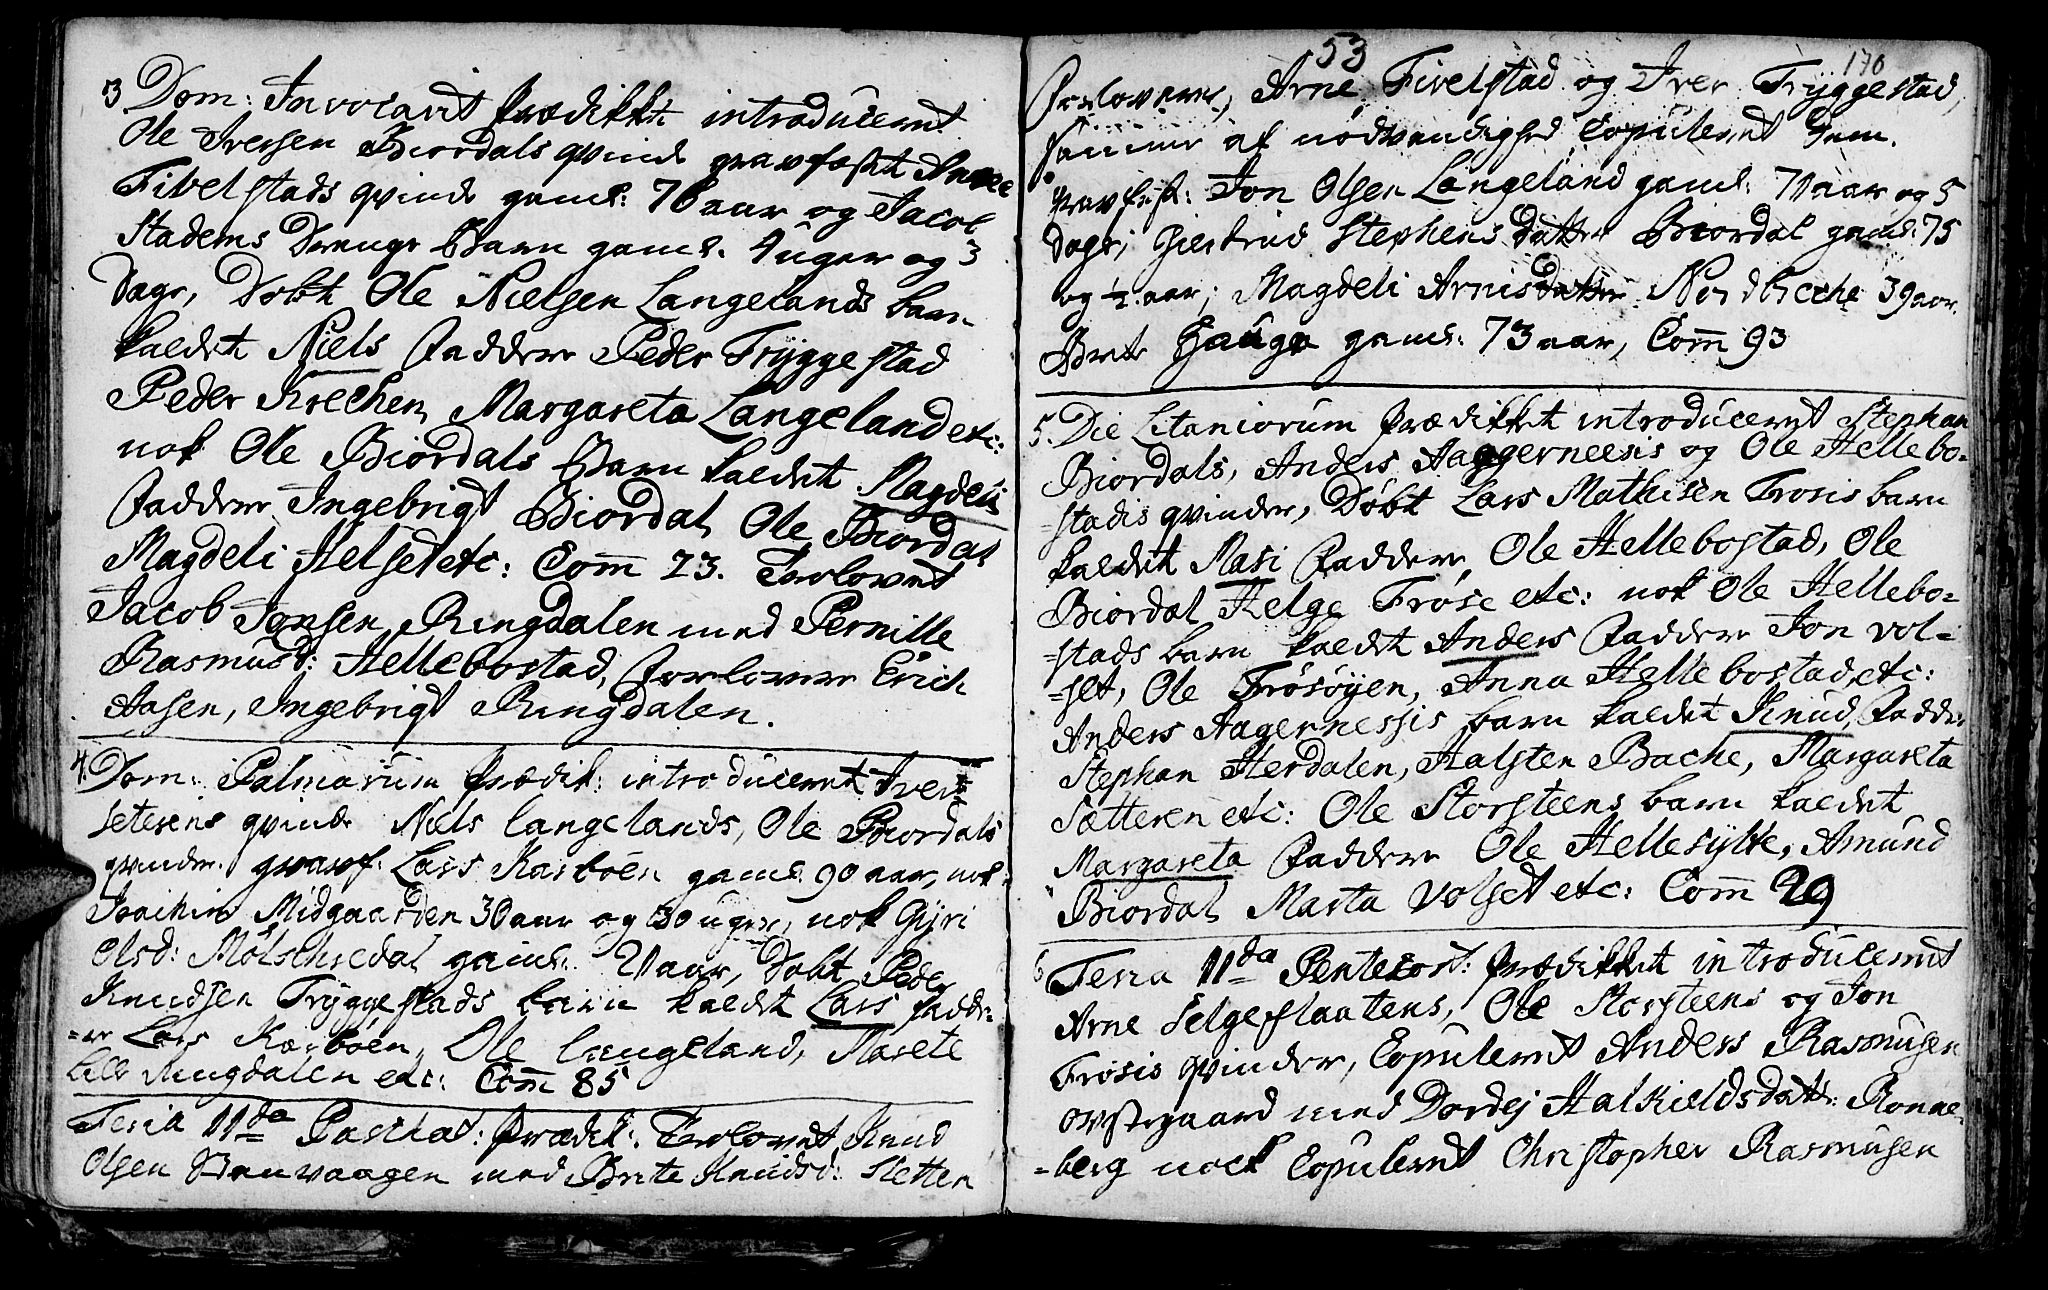 3 Dom: Invocavit prædikket introduceret
Ole Iversen Biordals qvinde gravfæstet Anne
Fivelstads qvinde gaml: 76 aar og Jacob
Stadems Drenge barn gaml. 4 uger og 3
Dage, Døbt Ole Nielsen Langelands barn
kaldet Niels Faddere Peder Tryggestad
Peder Krechen, Margareta Langeland etc:
nok Ole Biordals barn kaldet Magdeli
Faddere Ingebrigt Biordal, Ole Biordal
Magdeli Helset etc: Com̄ 23. Trolovet
Jacob Jonsen Ringdalen med Pernille
Rasmusd: Hellebostad, Forlovere Erich
Aasen, Ingebrigt Ringdalen.
4. Dom: Palmarum prædik: introduceret Iver
setesens qvinde Niels Langelands, Ole Biordals
qvinder. gravf: Lars Karboen gaml: 90 aar, nok
Joachim Midgaarden 30 aar og 30 uger, nok Gyri
Olsd: Molschredal gaml. aar, Døbt Peder
Knudsen Tryggestads barn kaldet Lars fadde-
=re Lars Karboen, Ole Langeland, Marete
Lille Ringdalen etc: Com̄ 85
Feria 11da Paschat: prædik: Trolovet Knud
Olsen med Brite Knudsd: Sletten
53
170
Forlovere, Arne Fivelstad og Iver Tryggestad,
sammer af nødvendighed Copuleret dem.
gravfæst: Jon Olsen Langeland gaml: 71 aar og 5
dage, Giertrud Stephens datter Biordal gaml: 75
og ½ aar, Magdeli Arnisdatter Nordbache 39 aar.
Brit Hauge gaml: 73 aar, Com̄ 93
5. Die Litaniorum prædikket introduceret Stephan
Biordals, Anders Aagerneesis og Ole Hellebo-
=stadis qvinder, Døbt Lars Mathisen Frøsis barn
kaldet Masi Faddere Ole Hellebostad, Ole
Biordal Helge Frøse etc: nok Ole Hellebo-
=stads barn kaldet Anders Faddere Jon vol-
=set, Ole Frøsøyen, Anna Hellebostad, etc:
Anders Aagernessis barn kaldet Knud, Fadde
Stephan Herdalen, Halsten Bache, Margareta
Sætteren etc: Ole Storsteens barn kaldet
Margareta Faddere Ole Hellesylte, Amund
Biordal Marta Volset etc: Com̄ 29
6 Feria 11da Pentecost: prædikket introduceret
Arne Selgeslaatens, Ole Storsteens og Jon
Frøsis qvinder, Copuleret Anders Rasmusen
ovstegaard med Dordej Halkieldsdatt: Ronne-
=berg nock Copuleret Christopher Rasmusen